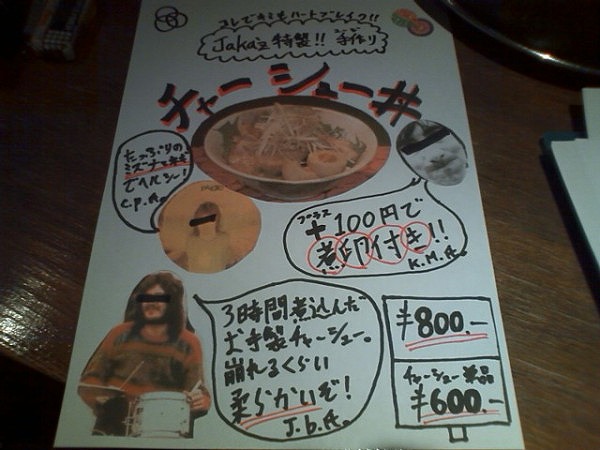 コレでキミもハートブレイク!!
Jaka'z 特製!! 手作り
チャーシュー丼
たっぷりの
ミズナとネギ
でヘルシー!
C.P.A.
プラス
+100円で
煮卵付き!!
K.M.A.
3時間煮込んだ
お手製チャーシュー。
崩れるくらい
柔らかいぞ!
J.b.A.
¥800.-
チャーシュー単品
¥600.-